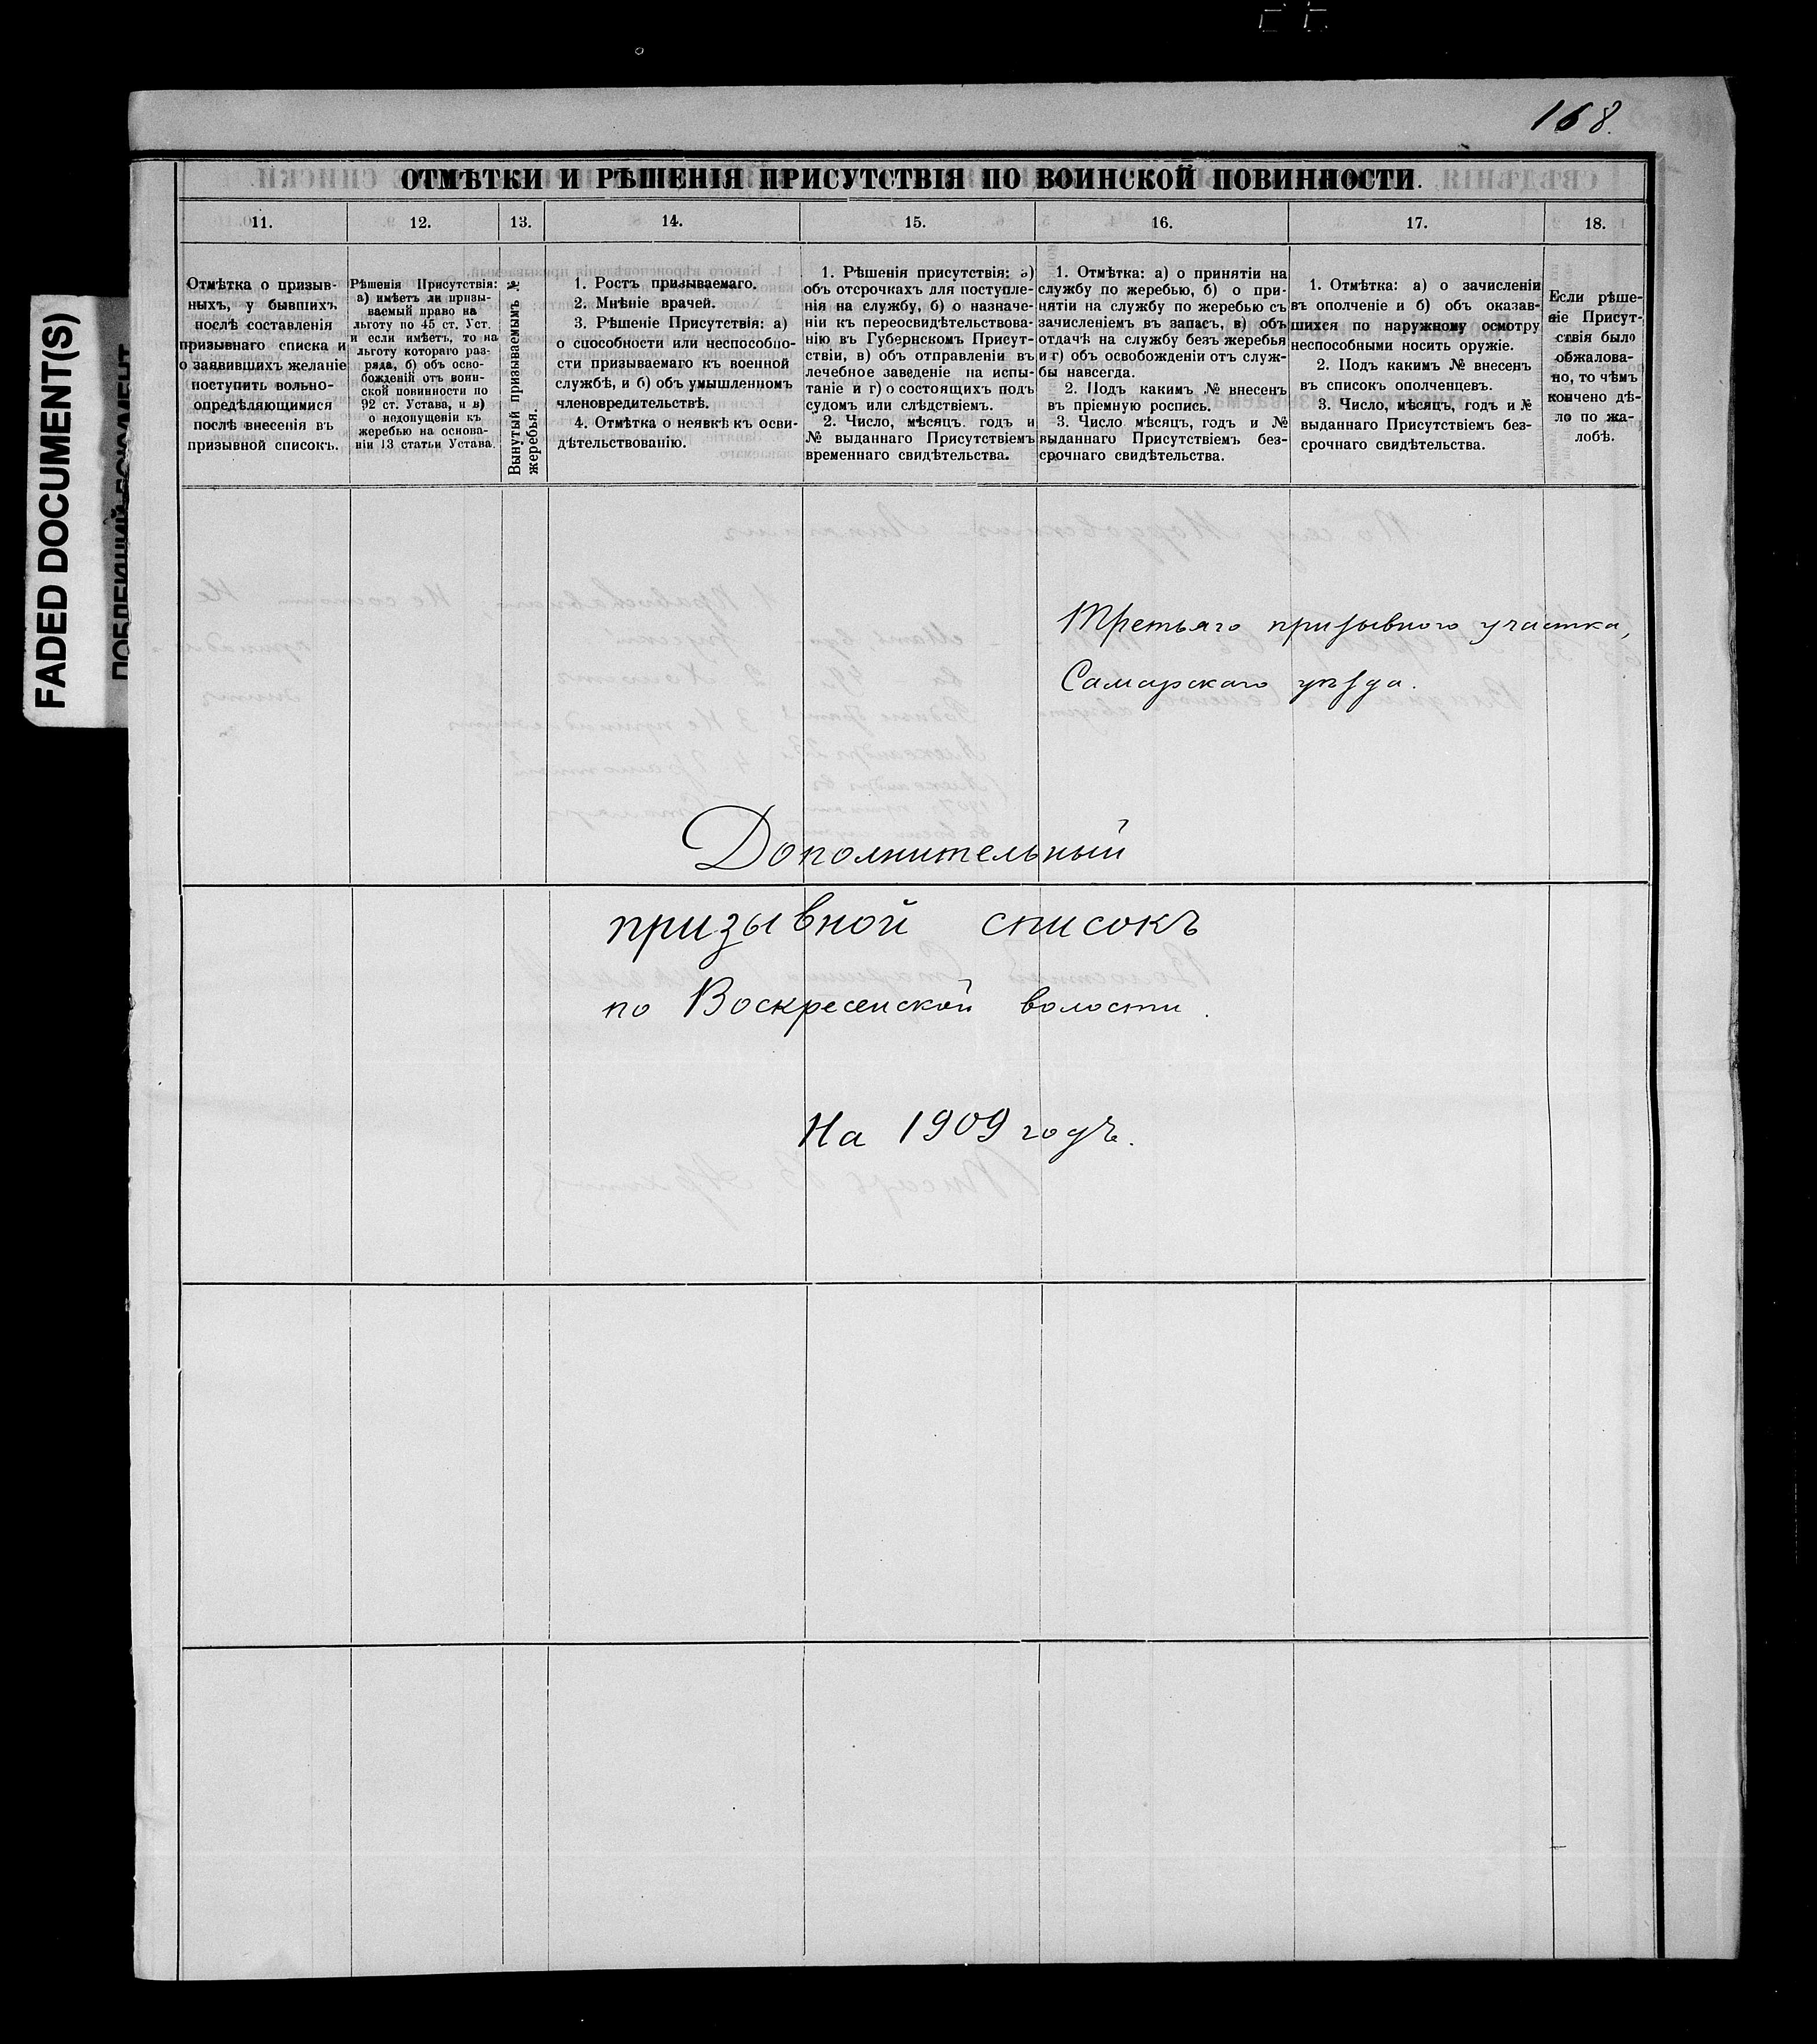 168.
FADED DOCUMENT(S)
ОТМѢТКИ И РѢШЕНІЯ ПРИСУТСТВІЯ ПО ВОИНСКОЙ ПОВИННОСТИ.
11.
12.
13.
14.
15.
16.
17.
18.
Отмѣтка о призыв-
ныхъ, у бывшихъ
послѣ составленія
призывнаго списка и
о заявившихъ желаніе
поступить вольно-
опредѣляющимися
послѣ внесенія въ
призывной списокъ.
Рѣшенія Присутствія:
а) имѣетъ ли призы-
ваемый право на
льготу по 45 ст. Уст.
и если имѣетъ, то на
льготу котораго раз-
ряда, б) объ осво-
божденіи отъ воин-
ской повинности по
92 ст. Устава, и в)
о недопущеніи къ
жеребью на основа-
ніи 13 статьи Устава.
Вынутый призываемымъ №
жеребья.
1. Ростъ призываемаго.
2. Мнѣніе врачей.
3. Рѣшеніе Присутствія: а)
о способности или неспособно-
сти призываемаго къ военной
службѣ, и б) объ умышленномъ
членовредительствѣ.
4. Отмѣтка о неявкѣ къ осви-
дѣтельствованію.
1. Рѣшенія присутствія: а)
объ отсрочкахъ для поступле-
нія на службу, б) о назначе-
ніи къ переосвидѣтельствова-
нію въ Губернскомъ Присут-
ствіи, в) объ отправленіи въ
лечебное заведеніе на испы-
таніе и г) о состоящихъ подъ
судомъ или слѣдствіемъ.
2. Число, мѣсяцъ. годъ и
№ выданнаго Присутствіемъ
временнаго свидѣтельства.
1. Отмѣтка: а) о принятіи на
службу по жеребью, б) о при-
нятіи на службу по жеребью съ
зачисленіемъ въ запасъ, в) объ
отдачѣ на службу безъ жеребья
и г) объ освобожденіи отъ служ-
бы навсегда.
2. Подъ какимъ № внесенъ
въ пріемную роспись.
3. Число мѣсяцъ, годъ и №
выданнаго Присутствіемъ без-
срочнаго свидѣтельства.
1. Отмѣтка: а) о зачисленіи
въ ополченіе и б) объ оказав-
шихся по наружному осмотру
неспособными носить оружіе.
2. Подъ какимъ № внесенъ
въ списокъ ополченцевъ.
3. Число, мѣсяцъ, годъ и №
выданнаго Присутствіемъ без-
срочнаго свидѣтельства.
Если рѣше-
ніе Присут-
ствія было
обжалова-
но, то чѣмъ
кончено дѣ-
ло по жа-
лобѣ.
Третьяго призывного участка,
Самарскаго уѣзда.
Дополнительный
призывной списокъ
по Воскресенской волости.
На 1909 годъ.